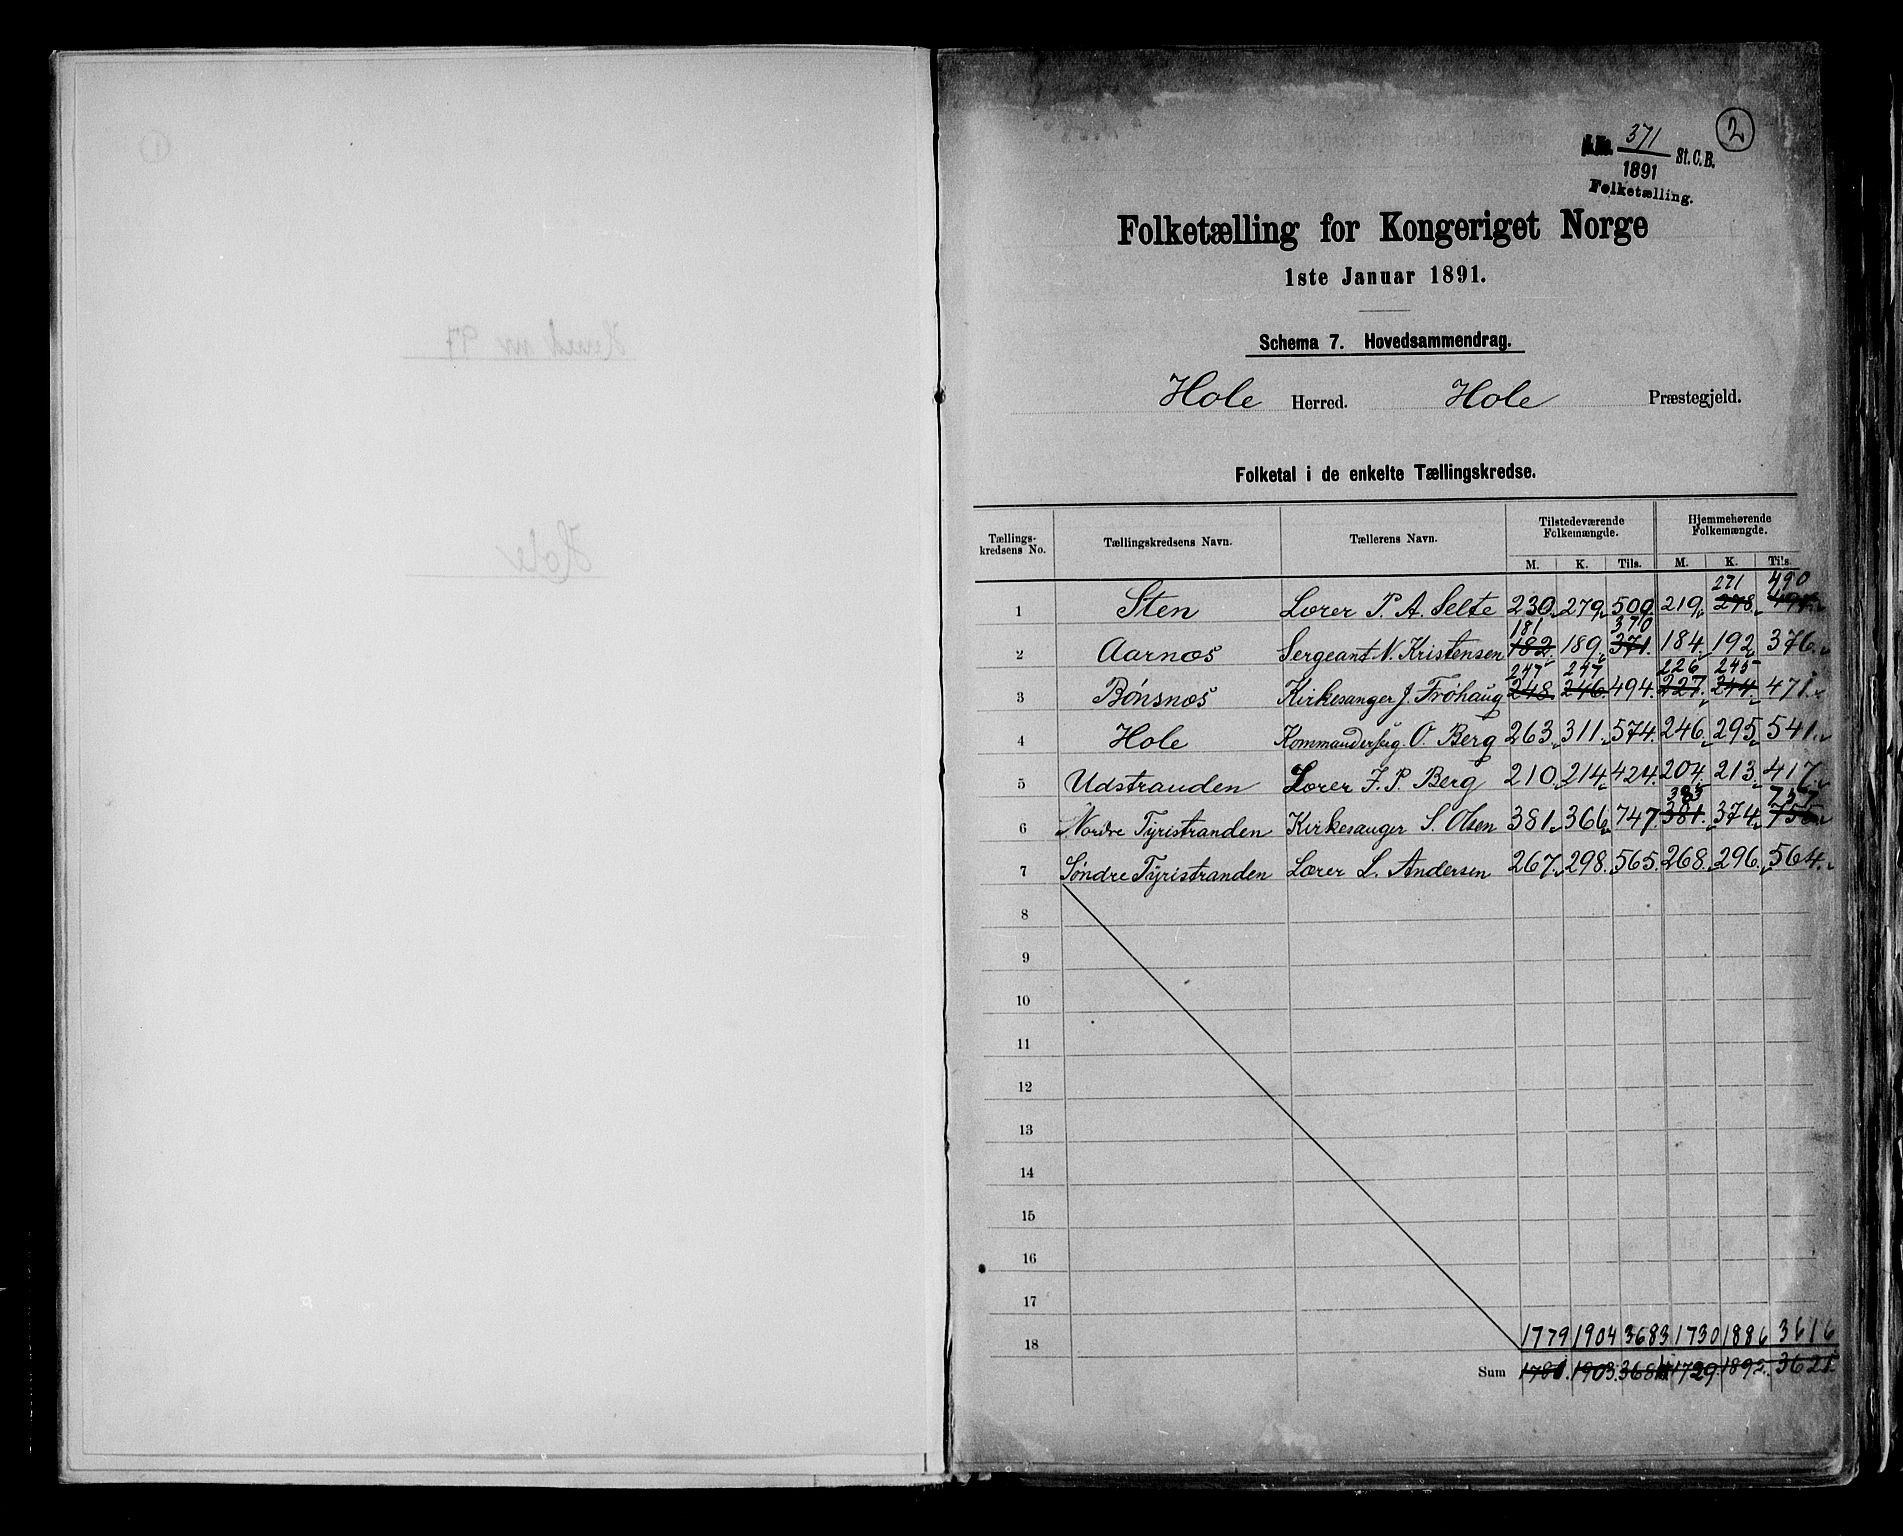 2
371
1891 St. C. B.
Folketælling.
Folketælling for Kongeriget Norge
1ste Januar 1891.
Schema 7. Hovedsammendrag.
Hole Herred. Hole Præstegjeld.
Folketal i de enkelte Tællingskredse.
Tællings-kredsens No. Tællingskredsens Navn. Tællerens Navn. Tilstedeværende Folkemængde. Hjemmehørende Folkemængde.
M. K. Tils. M. K. Tils.
271 490
1 Sten Lærer P. A. Selte 230 279 509 219 278
181 370
2 Aarnæs Sergeant N. Kristensen 182 189 371 184 192 376
247 247 226 245
3 Bönsnæs Kirkesanger J. Fröhaug 248 246 494 227 244 471
4 Hole Kommandersjerg. O. Berg 263 311 574 246 295 541
5 Udstranden Lærer J. P. Berg 210 214 424 204 213 417
383 757
6 Nordre Tyristranden Kirkesanger S. Olsen 381 366 747 381 374 755
7 Söndre Tyristranden Lærer L. Andersen 267 298 565 268 296 564
8
9
10
11
12
13
14
15
16
17
18 1779 1904 3683 1730 1886 3616
Sum 1781 1903 3684 1729 1892 3621
Herred nr 97
Hole